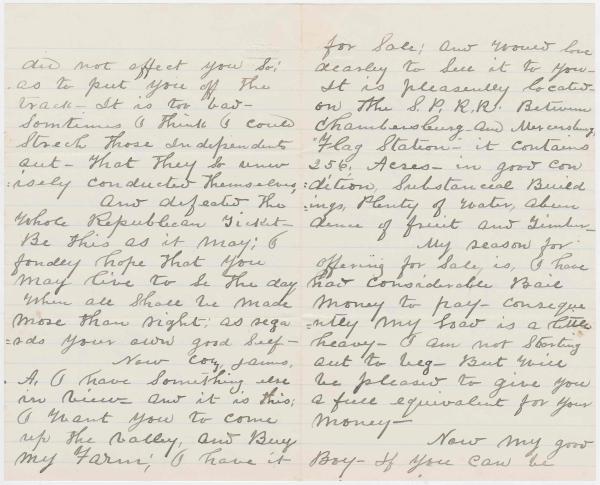 did not affect you so;
as to put you off the
track - It is too bad -
Somtimes I think I could
Strech those Independents
out - that they so unw
=isely conducted themselves,
And defeated the
Whole Republican Ticket -
Be this as it may; I
fondley hope that you
may live to se the day
When all Shall be made
more than right; as rega
=rds your own good Self -
Now Coz, James,
A. I have Something else
in view - and it is this;
I want you to come
up the valley, and Buy
my Farm; I have it
for Sale; and would love
dearley to See it to you -
It is pleasently located
on the S. P. R. R. Between
Chambersburg and Mercersburg,
Flag Station - it contains
256, Acres - in good con
=dition, Substancial Build
=ings, Plenty of water, abun
dence of fruit and Timber -
My season for
offering for Sale, is, I have
had considerable Bail
money to pay - conseque
=ntly my load is a little
heavy - I am not Starting
out to beg - But will
be pleased to give you
a full equivalent for your
money -
Now my good
Boy - If you can be